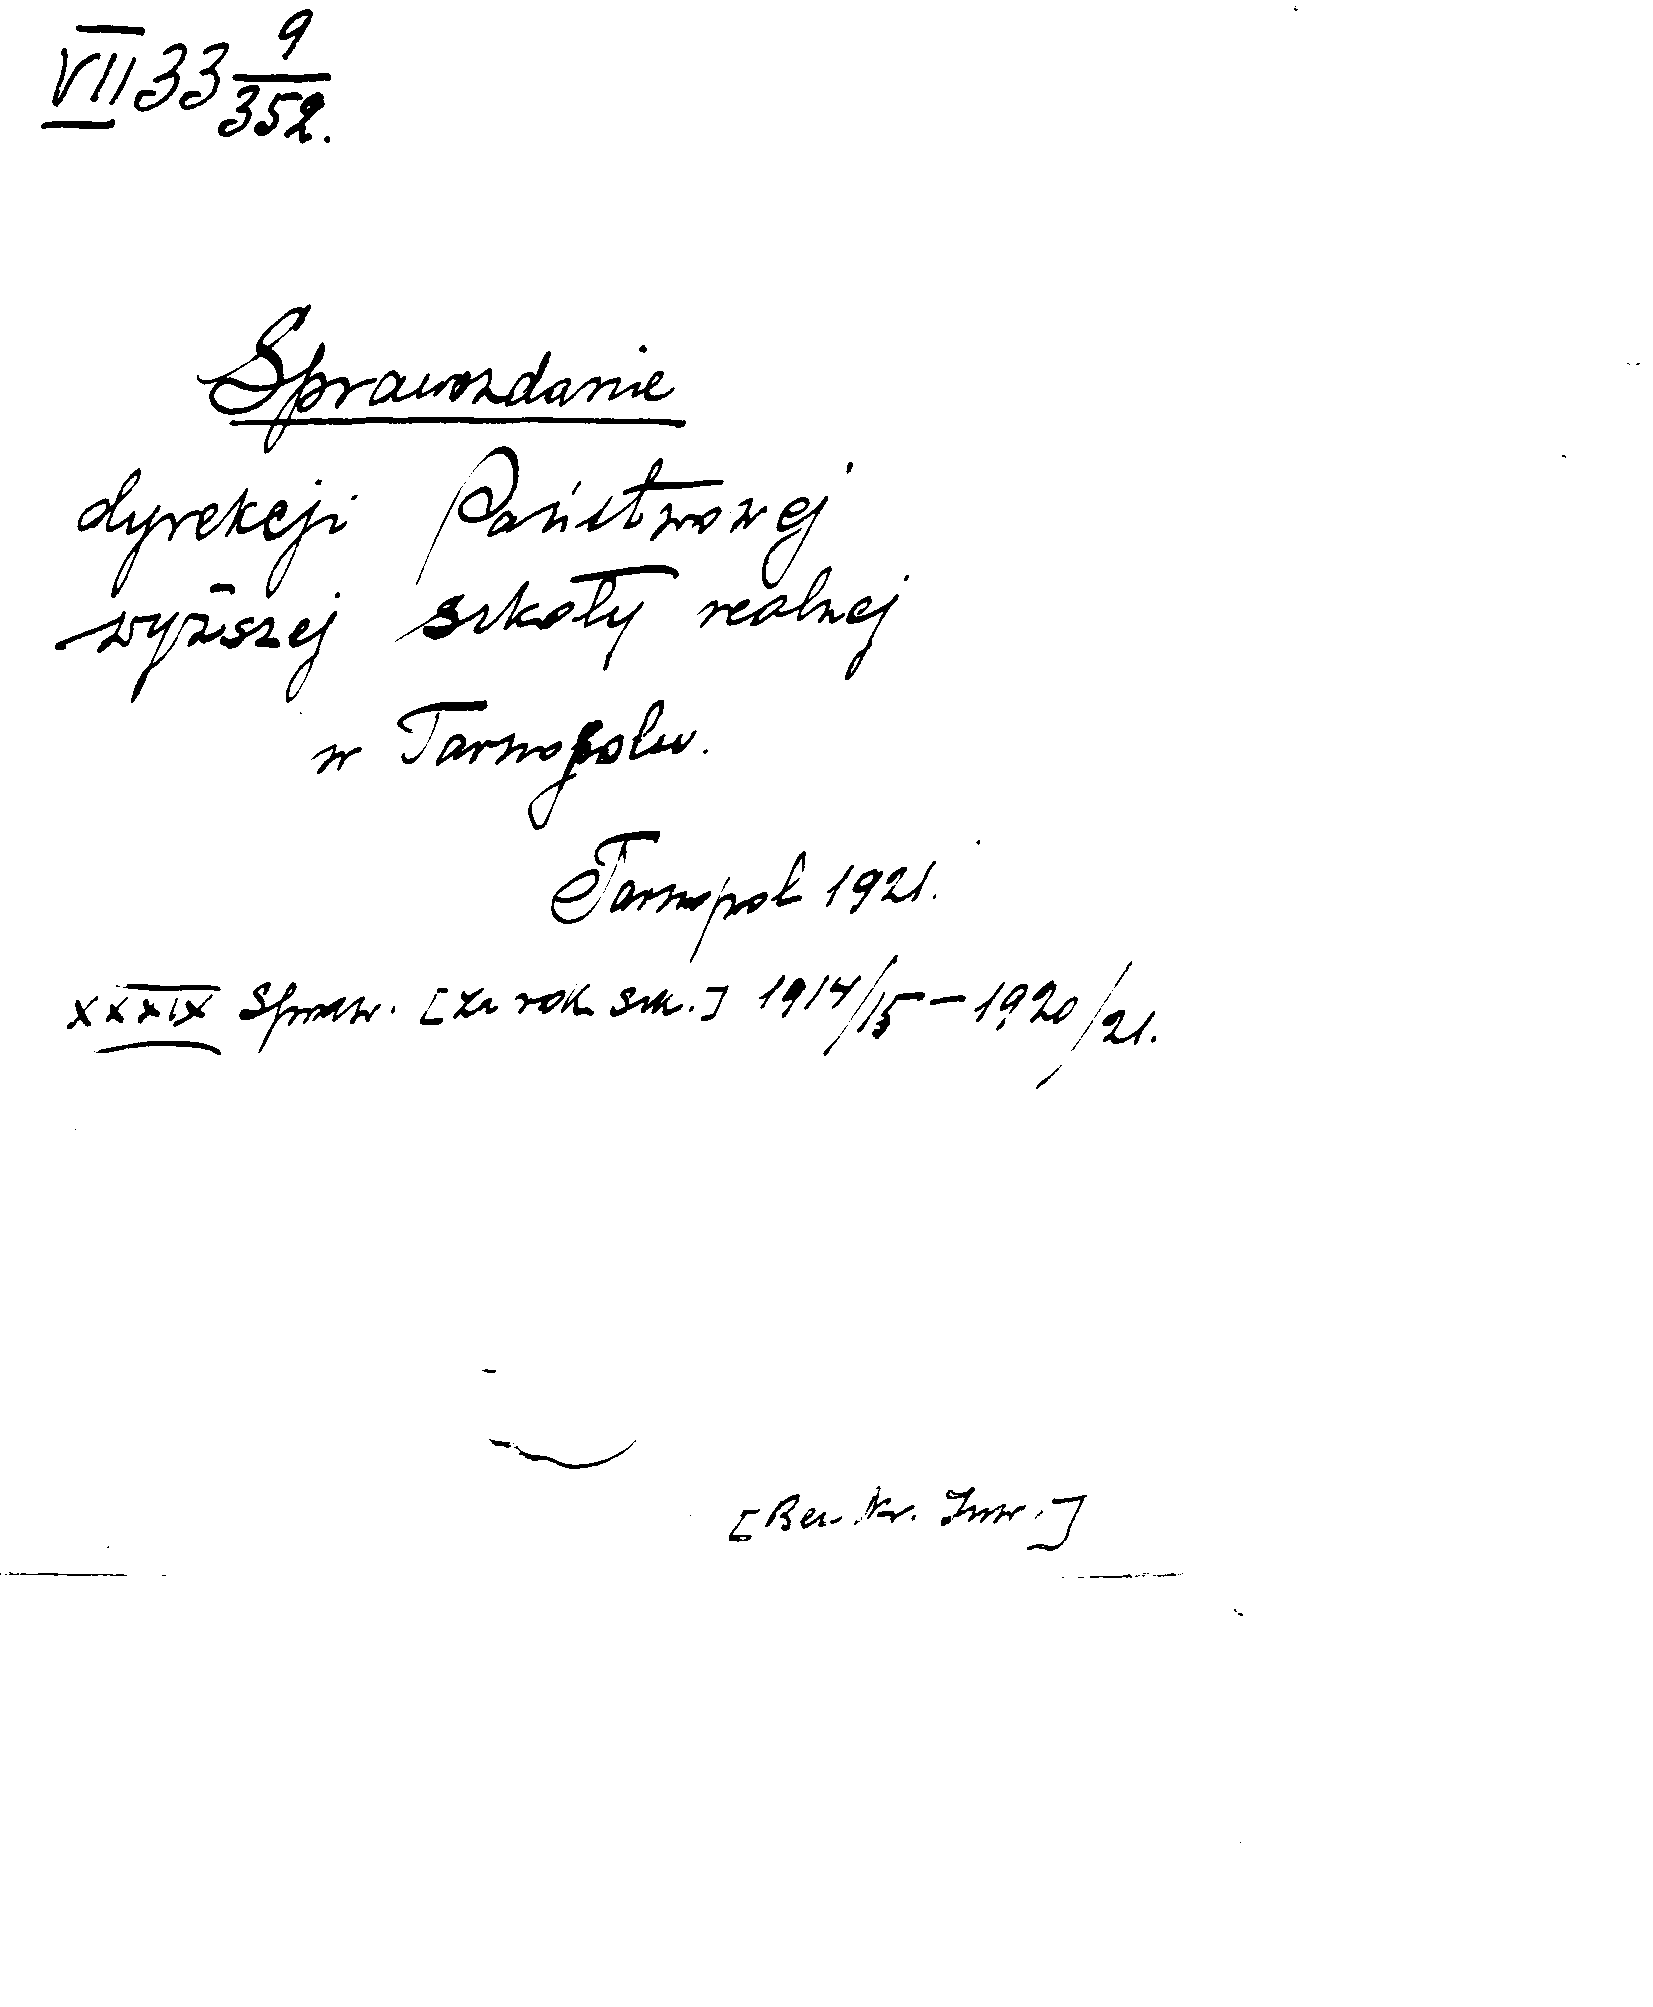 VII 33 9/352.
Sprawozdanie
dyrekcji Państwowej
wyższej szkoły realnej
w Tarnopolu.
Tarnopol 1921.
XXXIX Spraw. [za rok szk.] 1914/15 – 1920/21.
[Bez Nr. Inw.]